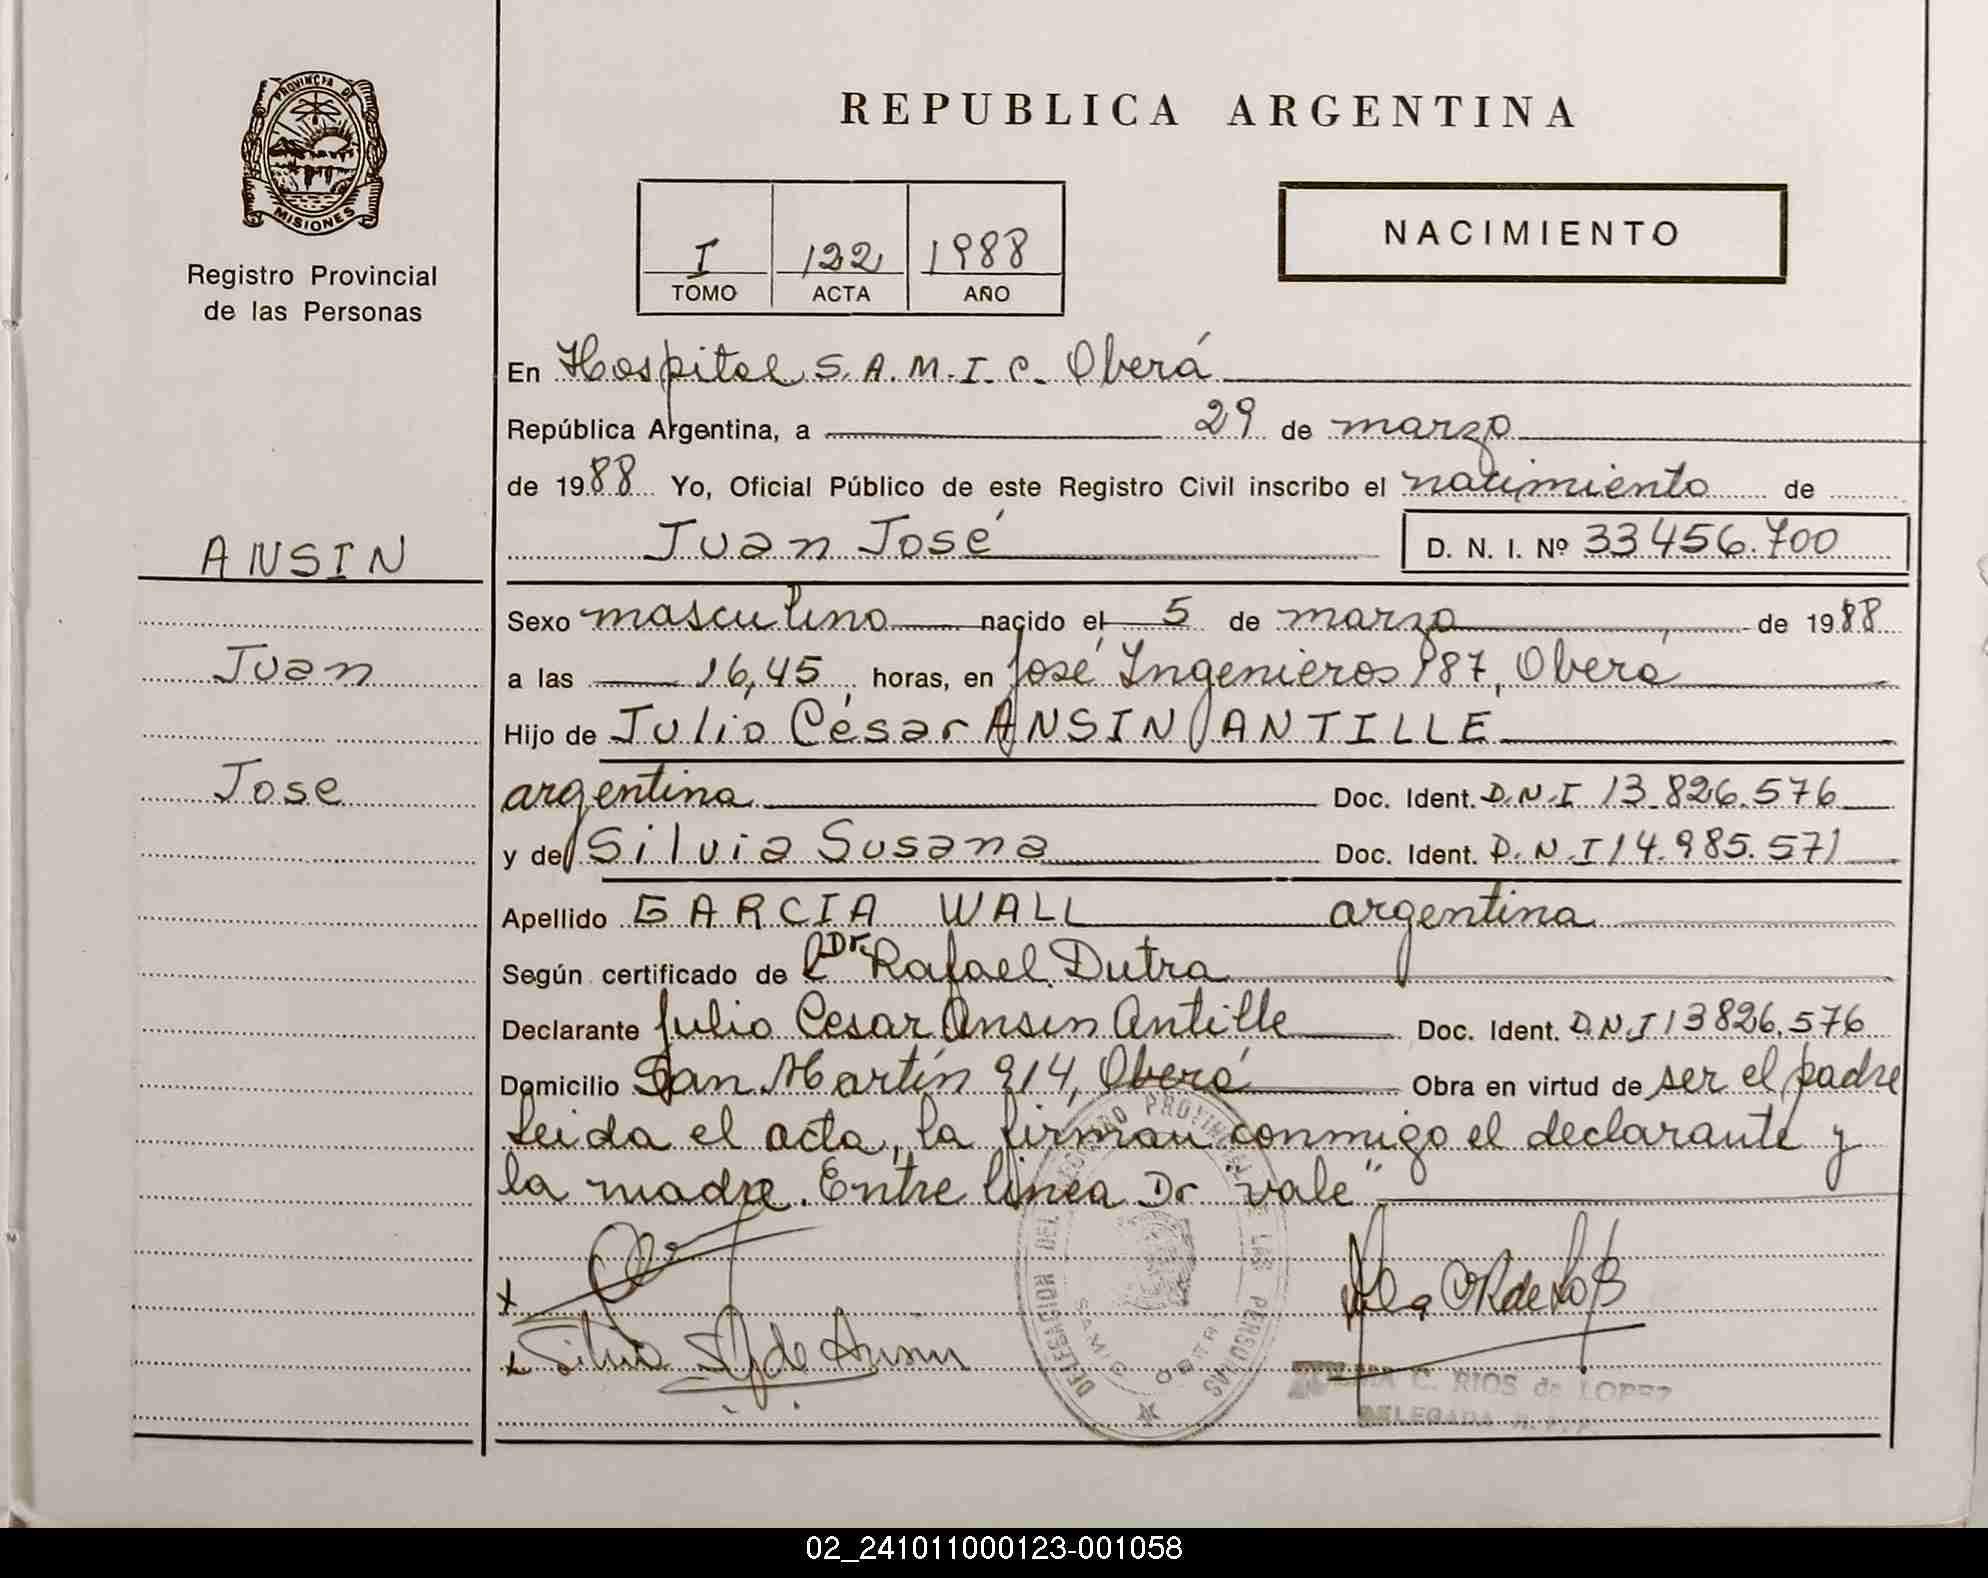 PROVINCIA DE
MISIONES
Registro Provincial
de las Personas
REPUBLICA ARGENTINA
I 122 1988
TOMO ACTA AÑO
NACIMIENTO
En Hospital S.A.M.I.C. Oberá
República Argentina, a 29 de marzo
de 1988 Yo, Oficial Público de este Registro Civil inscribo el nacimiento de
Juan José D. N. I. Nº 33.456.700
ANSIN
Juan
Jose
Sexo masculino nacido el 5 de marzo de 1988
a las 16,45 horas, en José Ingenieros 187, Oberá
Hijo de Julio César ANSIN ANTILLE
argentina Doc. Ident. D.N.I 13.826.576
y de Silvia Susana Doc. Ident. D.N.I 14.985.571
Apellido GARCIA WALL argentina
Según certificado de Dr. Rafael Dutra
Declarante Julio Cesar Ansin Antille Doc. Ident. D.N.I 13826.576
Domicilio San Martín 914, Oberá Obra en virtud de ser el padre
Leida el acta, la firman conmigo el declarante y
la madre. Entre línea Dr "vale"
DELEGACION DEL REGISTRO PROVINCIAL DE LAS PERSONAS
SAMIC OBERA
Silvia de Ansin
C. RIOS de LOPEZ
DELEGADA R.P.P.
02_241011000123-001058